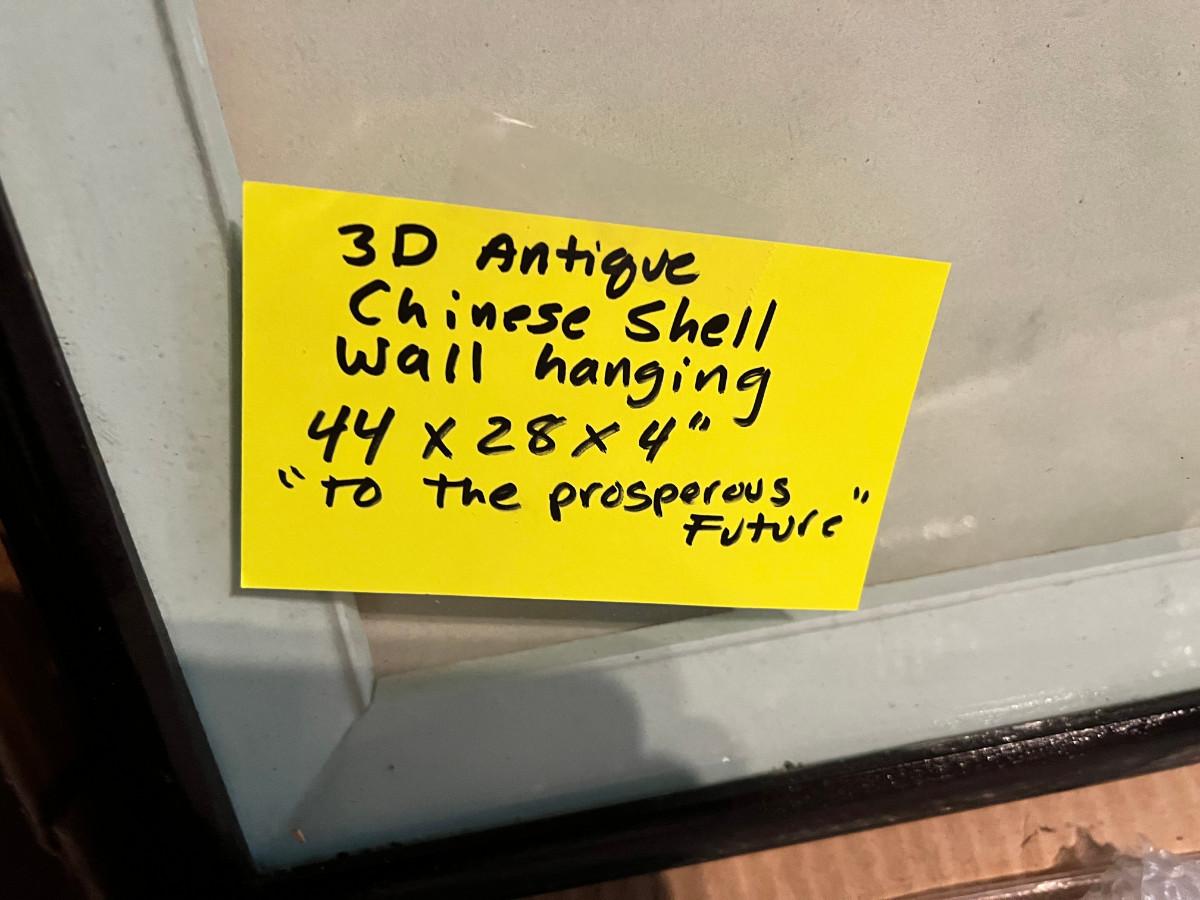 3D Antique
Chinese Shell
Wall hanging
44 x 28 x 4"
"To the prosperous
Future"